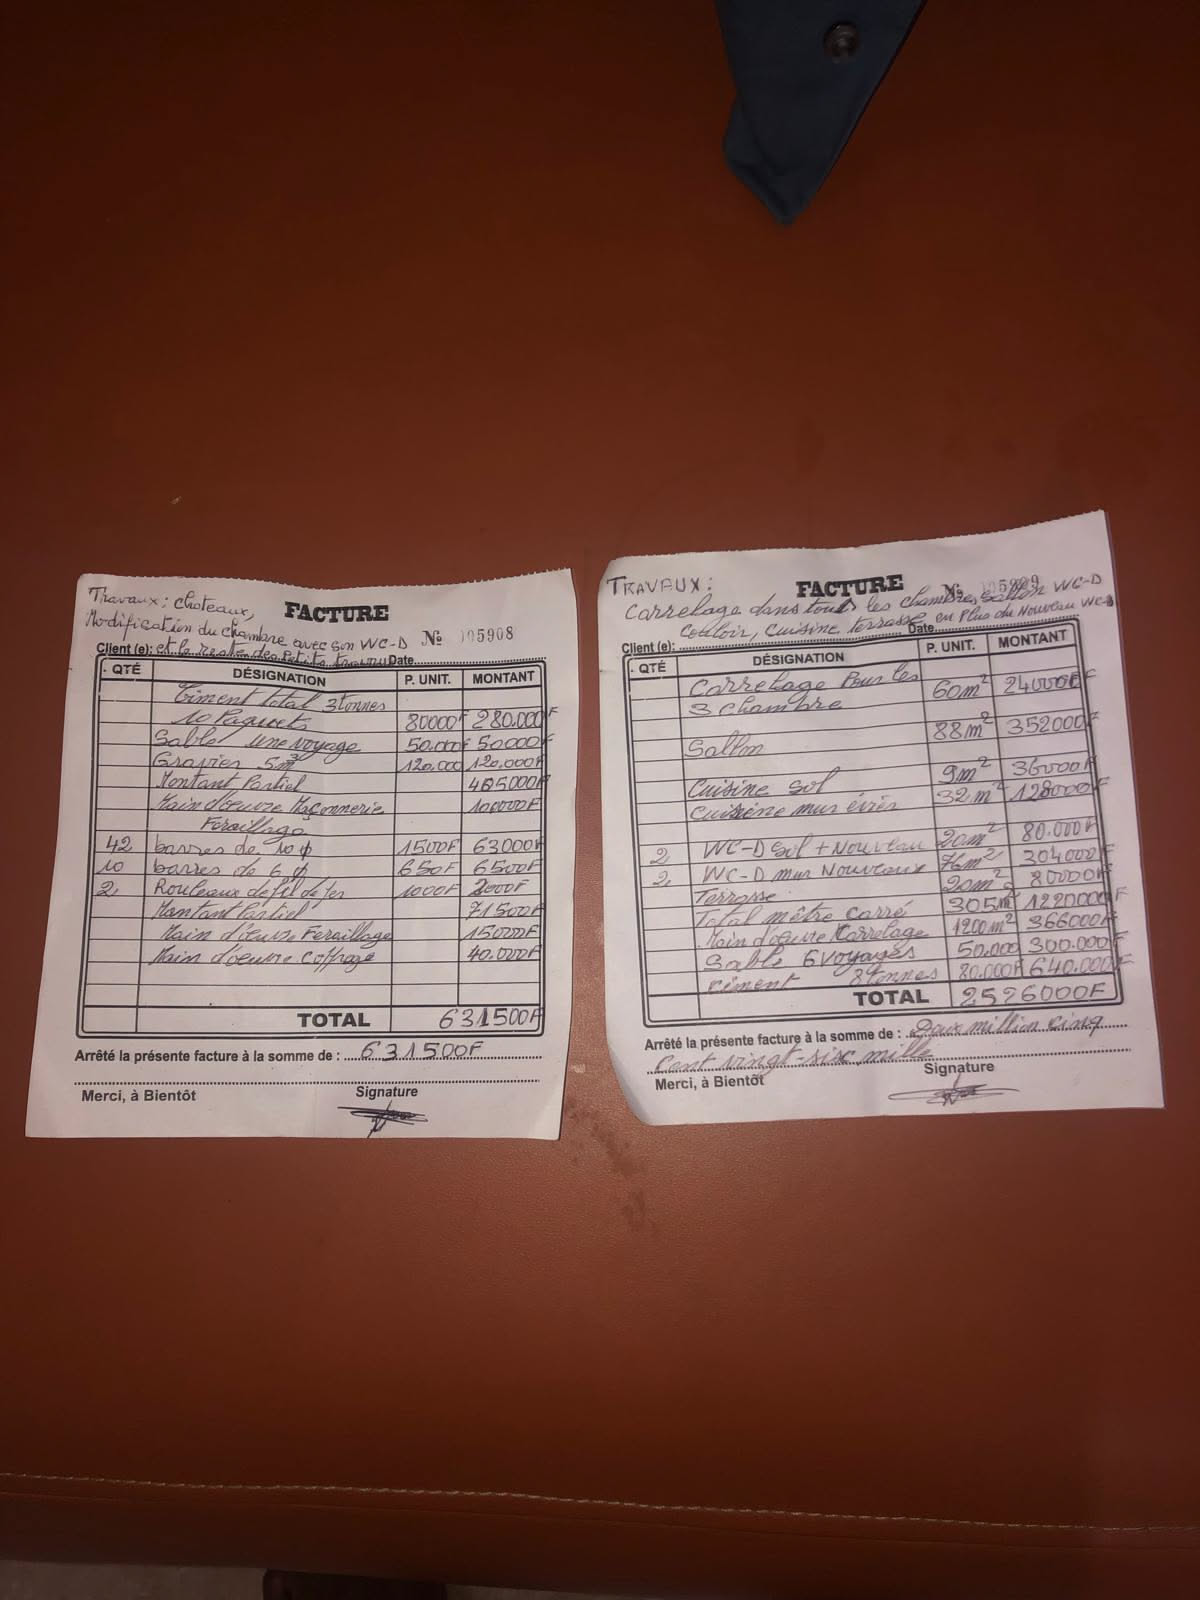 Travaux: choteaux,
FACTURE
Modification du chambre avec son WC-D
N° 105908
Client (e): et le reste des petits travau Date
QTÉ DÉSIGNATION P. UNIT. MONTANT
Ciment total 3tonnes
10 Paquets 80000F 280.000F
Sable une voyage 50.000F 50.000F
Gravier 5m³ 120.000 120.000F
Montant Partiel 465000F
Main d'œuvre Maçonnerie 100000F
Feraillage
42 barres de 10 ϕ 1500F 63000F
10 barres de 6 ϕ 650F 6500F
2 Rouleaux de fil de fer 1000F 2000F
Montant Partiel 71500F
Main d'œuvre Feraillage 15000F
Main d'œuvre coffrage 40.000F
TOTAL 631500F
Arrêté la présente facture à la somme de : 631500F
Merci, à Bientôt Signature
TRAVEUX:
FACTURE
N° 105909
Carrelage dans touts les chambre, sallon WC-D
couloir, cuisine terrasse en Plus du Nouveau WC-D
Client (e): Date
QTÉ DÉSIGNATION P. UNIT. MONTANT
Carrelage Pour les 60m² 240000F
3 chambre
Sallm 88m² 352000F
Cuisine Sol 9m² 36000F
cuisiene mur évies 32m² 128000F
2 WC-D Sol + Nouveau 20m² 80.000F
2 WC-D mur Nouveaux 76m² 304000F
Terrasse 20m² 80000F
Total mêtre carré 305m² 1220000F
Main d'œuvre Karrelage 1200m² 366000F
Sable 6 voyages 50.000 300.000F
ciment 8 tonnes 80.000F 640.000F
TOTAL 2526000F
Arrêté la présente facture à la somme de : Deux million cinq
cent vingt-sixc mille
Merci, à Bientôt Signature